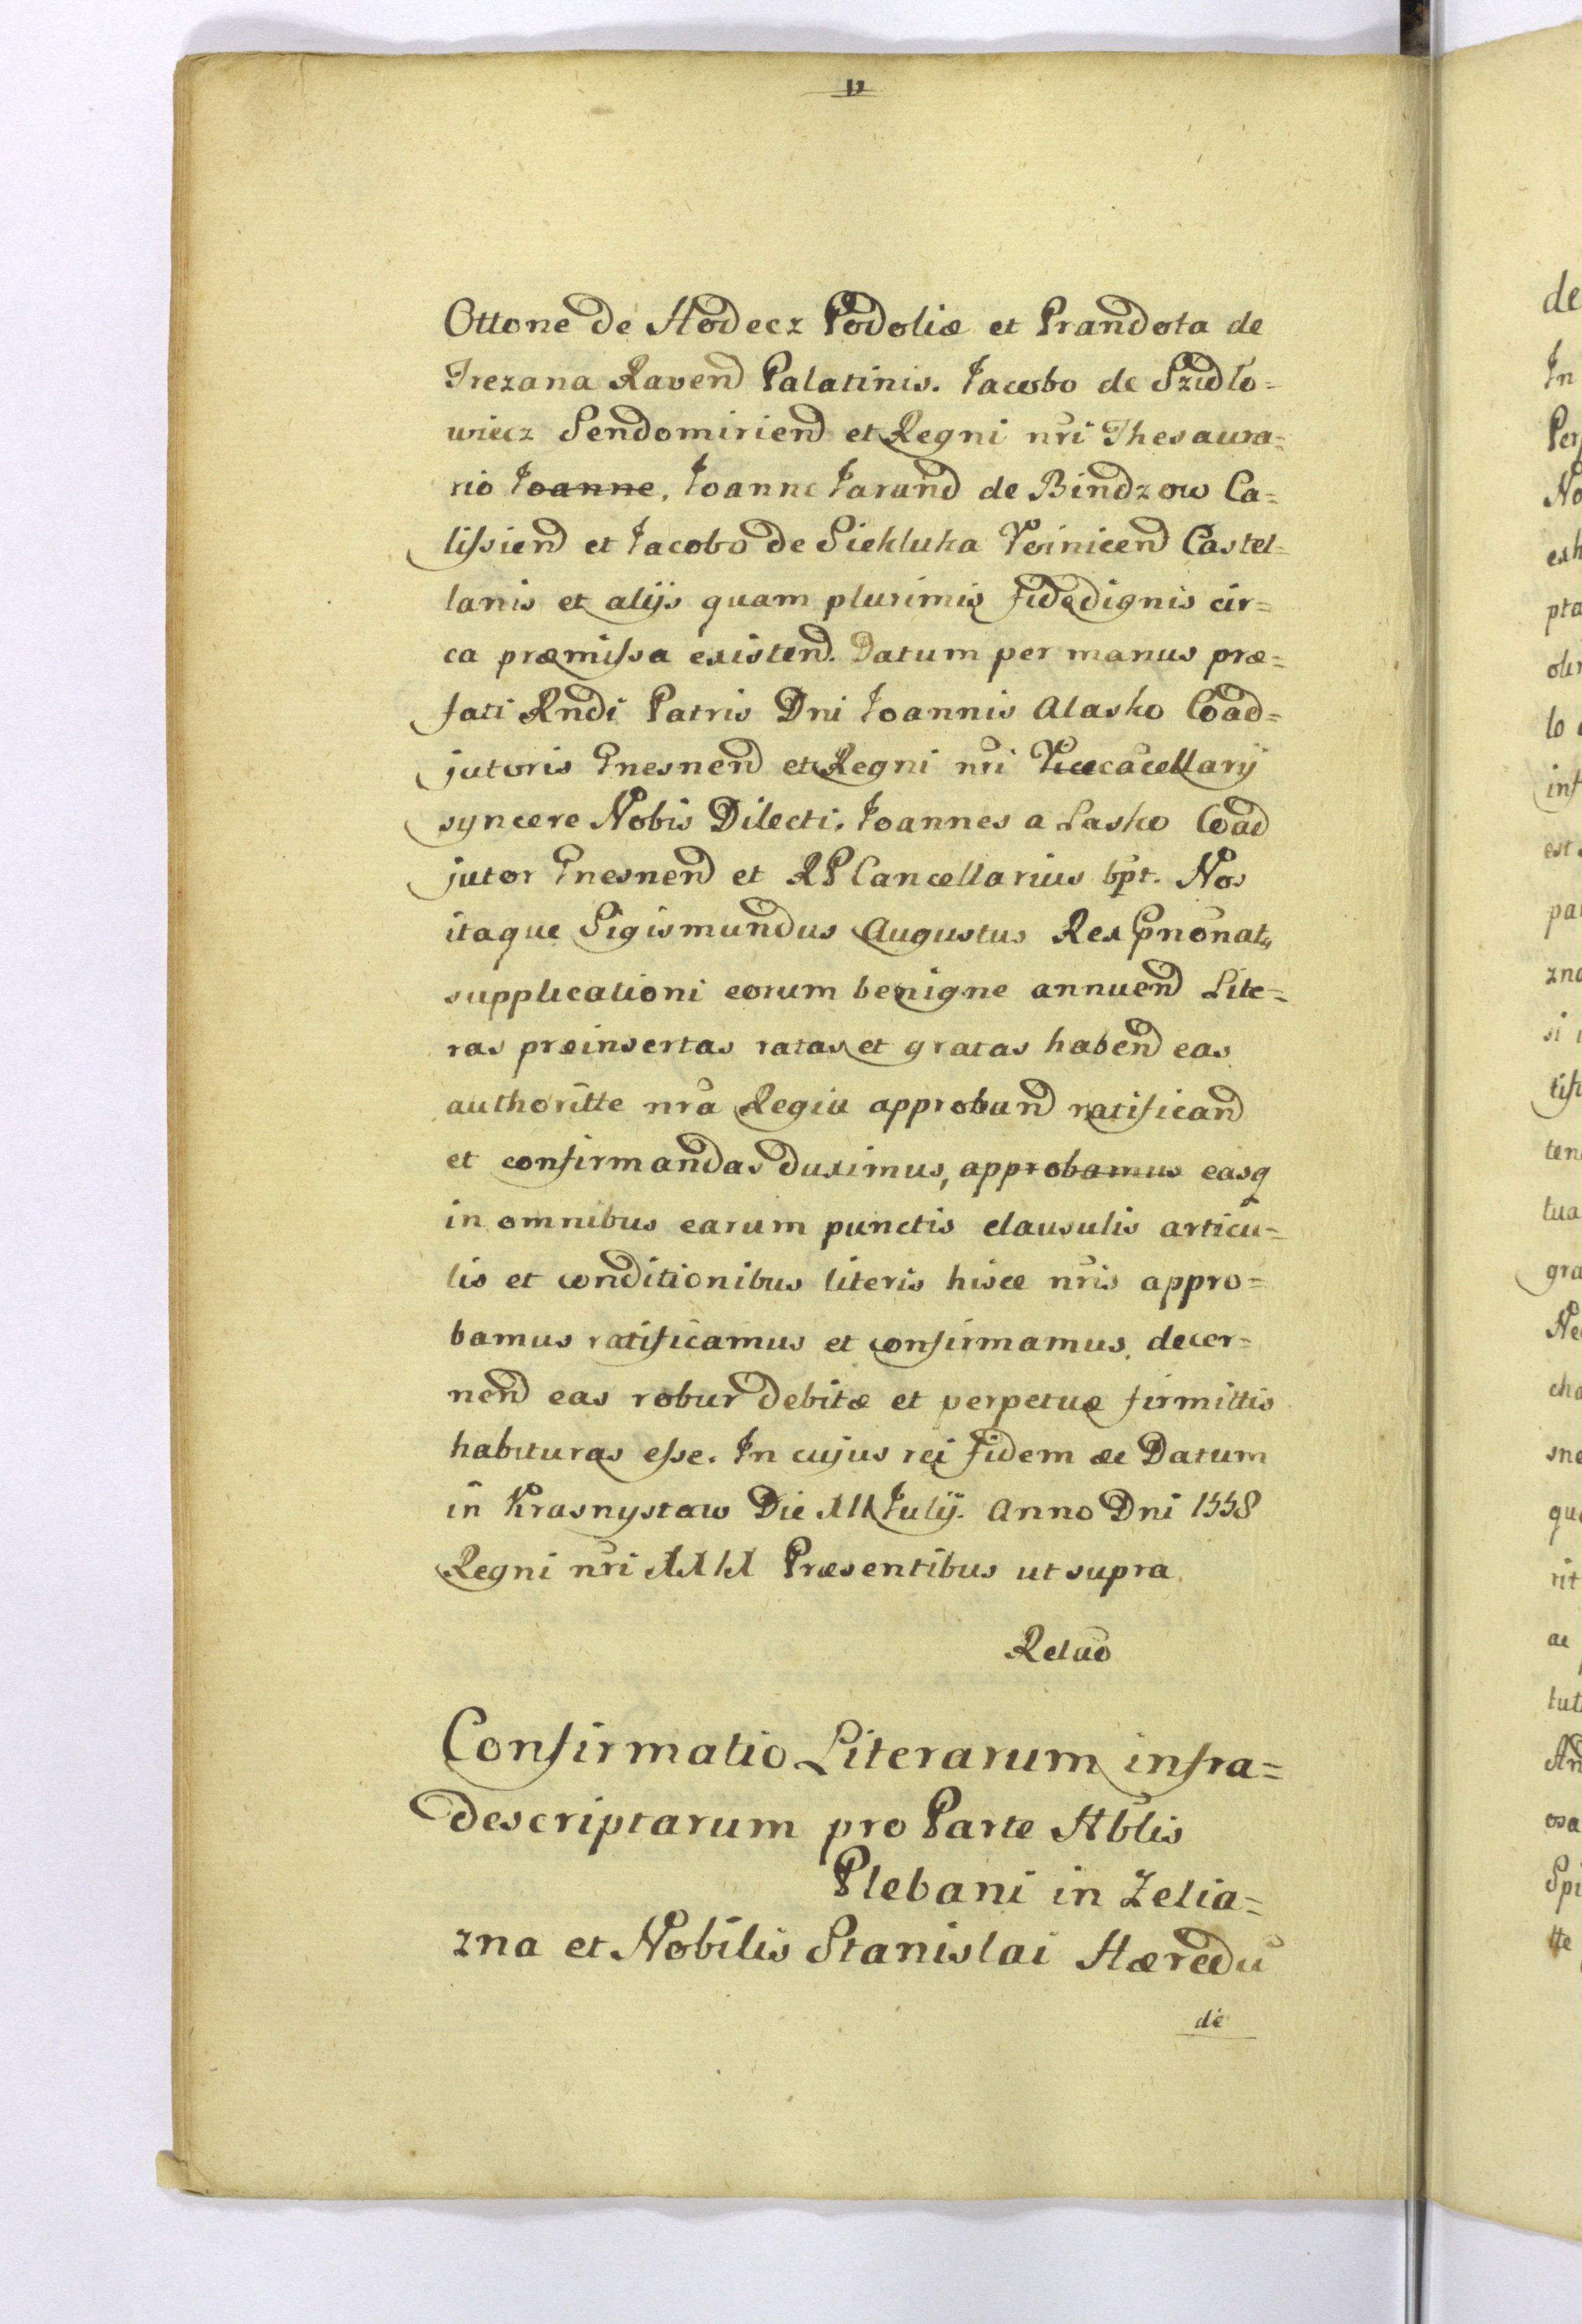 12
Ottone de Hodecz Podoliæ et Prandota de
Trezana Raven̄d Palatinis. Jacobo de Szidło=
wiecz Sendomirien̄d et Regni nr̄i Thesaura=
rio Joanne, Joanne Jarand de Bindzow Ca=
lissien̄d et Jacobo de Siekluka Voinicen̄d Castel=
lanis et alijs quam plurimis fidedignis cir=
ca præmissa existen̄d. Datum per manus præ=
fati Rn̄di Patris Dni Joannis Alasko Coad=
jutoris Gnesnen̄d et Regni nr̄i Vicecācellarij
syncere Nobis Dilecti. Joannes a Lasko Coad
jutor Gnesnen̄d et RP Cancellarius bpt. Nos
itaque Sigismundus Augustus Rex Pn̄onat„
supplicationi eorum benigne annuen̄d Lite=
ras præinsertas ratas et gratas haben̄d eas
authorītte nr̄a Regia approban̄d ratifican̄d
et confirmandas duximus, approbamus easq
in omnibus earum punctis clausulis articu=
lis et conditionibus literis hisce nr̄is appro=
bamus ratificamus et confirmamus, decer=
nen̄d eas robur debitæ et perpetuæ firmittis
habituras esse. In cujus rei fidem &c Datum
in Krasnystaw Die XII Julij. Anno Dni 1558
Regni nr̄i XXIX Præsentibus ut supra.
Relāo
Confirmatio Literarum infra=
descriptarum pro Parte Hb̄lis
Plebani in Zelia=
zna et Nobilis Stanislai Hæredū
de